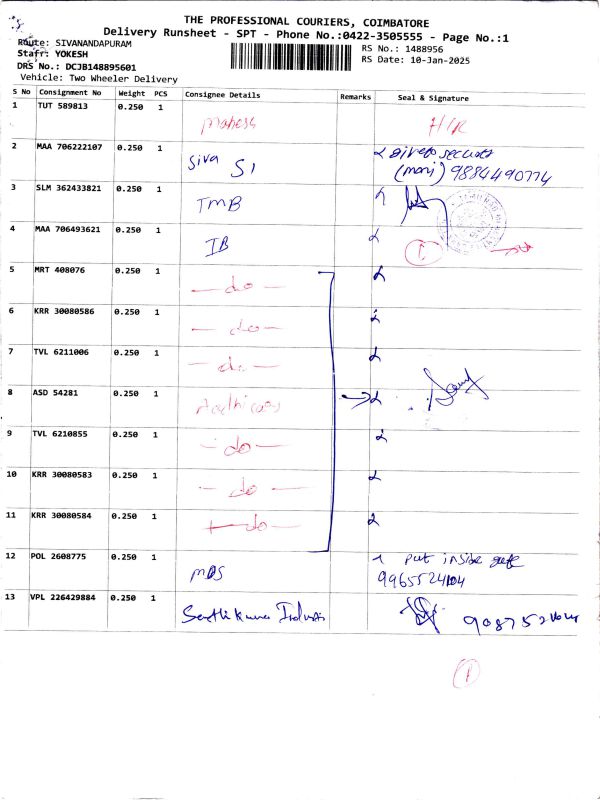 THE PROFESSIONAL COURIERS, COIMBATORE
Delivery Runsheet - SPT - Phone No.:0422-3505555 - Page No.:1
Route: SIVANANDAPURAM
Staff: YOKESH
DRS No.: DCJB148895601
Vehicle: Two Wheeler Delivery
RS No.: 1488956
RS Date: 10-Jan-2025
S No Consignment No Weight PCS Consignee Details Remarks Seal & Signature
1 TUT 589813 0.250 1 H/R
2 MAA 706222107 0.250 1 Siva SI
(mani) 9884490774
3 SLM 362433821 0.250 1 TMB
4 MAA 706493621 0.250 1 IB 1
5 MRT 408076 0.250 1 — do —
6 KRR 30080586 0.250 1 — do —
7 TVL 6211006 0.250 1 — do —
8 ASD 54281 0.250 1
9 TVL 6210855 0.250 1 — do —
10 KRR 30080583 0.250 1 — do —
11 KRR 30080584 0.250 1 — do —
12 POL 2608775 0.250 1 MDS Put inside
13 VPL 226429884 0.250 1
1